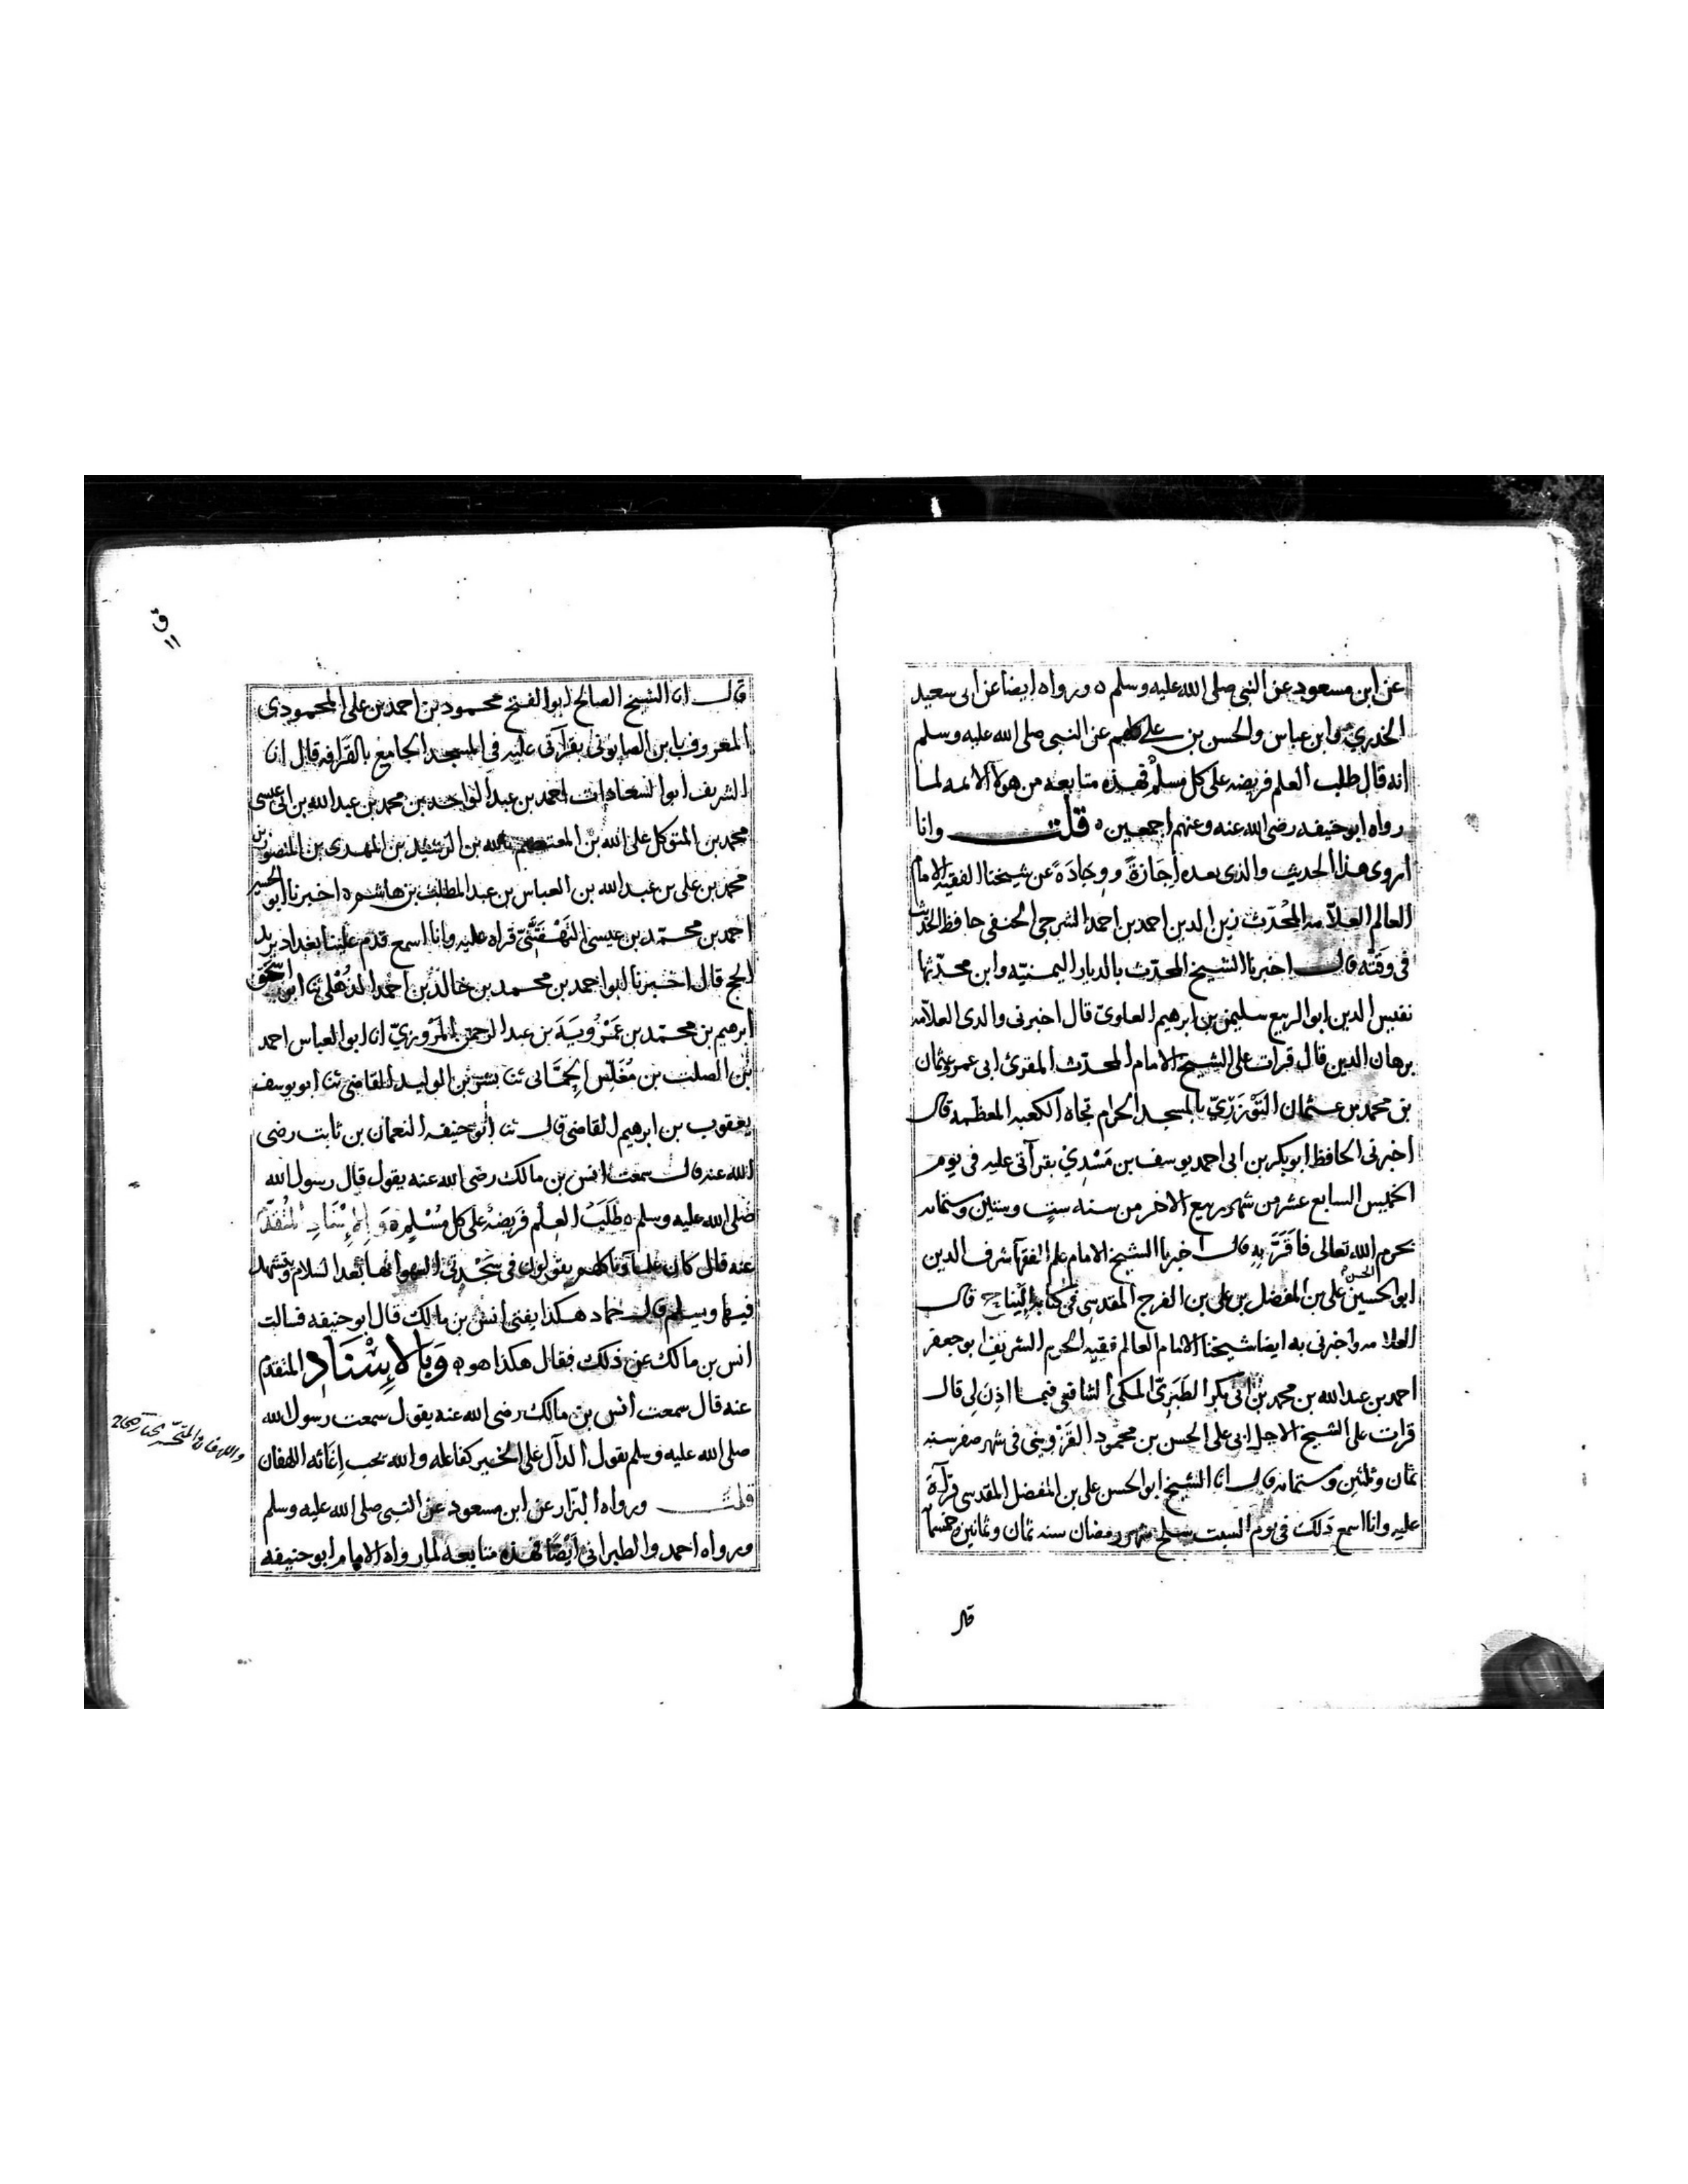 عن ابن مسعود عن النبي صلى الله عليه وسلم ٥ ورواه ايضا عن ابى سعيد
الخدري وابن عباس والحسن بن على كلهم عن النبى صلى الله عليه وسلم
انه قال طلب العلم فريضه على كل مسلم فهذه متابعه من هولا الائمه لما
رواه ابو حنيفه رضى الله عنه وعنهم اجمعين ٥ قلت وانا
اروى هذا الحديث والذى بعده اجَازَةً ووِجَادَةً عن شيخنا الفقيه الامام
العالم العلاّمه المُحدّث زين الدين احمد بن احمد الشرجى الحنفى حافظ الحديث
فى وَقتْه قال اخبرنا الشيخ المحدّث بالديار اليمنيّه وابن محدّثها
نفيس الدين ابو الربيع سليمن بن ابرهيم العلوىّ قال اخبرنى والدى العلامه
برهان الدين قال قرات على الشيخ الامام المحدّث المقرئ ابى عمر وعثمان
بن محمد بن عثمان التَّوْزَرِيّ بالمسجد الحرام تجاه الكعبه المعظمه قال
اخبرنى الحافظ ابو بكر بن ابى احمد يوسف بن مَسْدِيْ بقرآتى عليه فى يوم
الخميس السابع عشر من شهر ربيع الاخر من سنه ست وستين وستمايه
بحرم الله تعالى فاَقَرَّ بِهِ قال اخبرنا الشيخ الامام علم الفقهآ شرف الدين
ابو الحسين الحسن على بن المفضل بن على بن الفرج المقدسى فى كتابه قال
العلامه واخبرنى به ايضا شيخنا الامام العالم فقيه الحرم الشريف ابو جعفر
احمد بن عبد الله بن محمد بن ابى بكر الطَبَرِيّ المكى الشافعى فيما اذِنَ لِى قال
قرات على الشيخ الاجل ابى على الحسن بن محمود القَزْوينى فى شهر صفر سنه
ثمان وثلثين وستمايه قال انا الشيخ ابو الحسن على بن المفضل المقدسى قرآةً
عليه وانا اسمع ذلك فى يوم السبت سلخ شهر رمضان سنه ثمان وثمانين وخمسمايه
قال
ق ١١
قال انا الشيخ الصالح ابو الفتح محمود بن احمد بن على المحمودى
المعروف بابن الصابونى بقرآتى عليه فى المسجد الجامع بالقَرَافه قال انا
الشريف ابو السعادات احمد بن عبد الواحد بن محمد بن عبد الله بن ابى عيسى
محمد بن المتوكل على الله بن المعتصم بالله بن الرشيد بن المهدى بن المنصور
محمد بن على بن عبد الله بن العباس بن عبد المطلب بن هاشم ٥ اخبرنا ابو الحسين
احمد بن محمّد بن عيسى قراه عليه وانا اسمع قدم علينا بغداد يريد
الحج قال اخبرنا ابو احمد بن محمد بن خالد بن احمد الذُهلى ثنا ابو اسحق
ابرهيم بن محمّد بن عَمْرُويَهَ بن عبد الرحمن المَرْوزيّ انا ابو العباس احمد
بن الصلت بن مُغَلِّس الحِمَّانى ثنا بشر بن الوليد القاضى ثنا ابو يوسف
يعقوب بن ابرهيم القاضى قال ثنا ابو حنيفه النعمان بن ثابت رضى
الله عنه قال سمعت انس بن مالك رضى الله عنه يقول قال رسول الله
صلى الله عليه وسلم ٥ طَلَبُ العِلْم فَريضةٌ على كل مُسْلِمٍ ٥ وَبِالاِسْنَادِ المُتقدّم
عنه قال كان علمآونا كلهم يقولون فى سَجْدتَى السهو انهما بعد السلام ويتشهد
فيهما ويسلم قال حماد هكذا يفتى انس بن مالك قال ابو حنيفه فسالت
انس بن مالك عن ذلك فقال هكذا هو ٥ وَبِالاِسْنَادِ المتقدم
عنه قال سمعت انس بن مالك رضى الله عنه يقول سمعت رسول الله
صلى الله عليه وسلم يقول الدآل على الخير كفاعله والله يحب اِغَاثه اللهفان
قلت ورواه البزار عن ابن مسعود عن النبى صلى الله عليه وسلم
ورواه احمد والطبرانى اَيْضًا فهذه متابعه لما رواه الامام ابو حنيفه